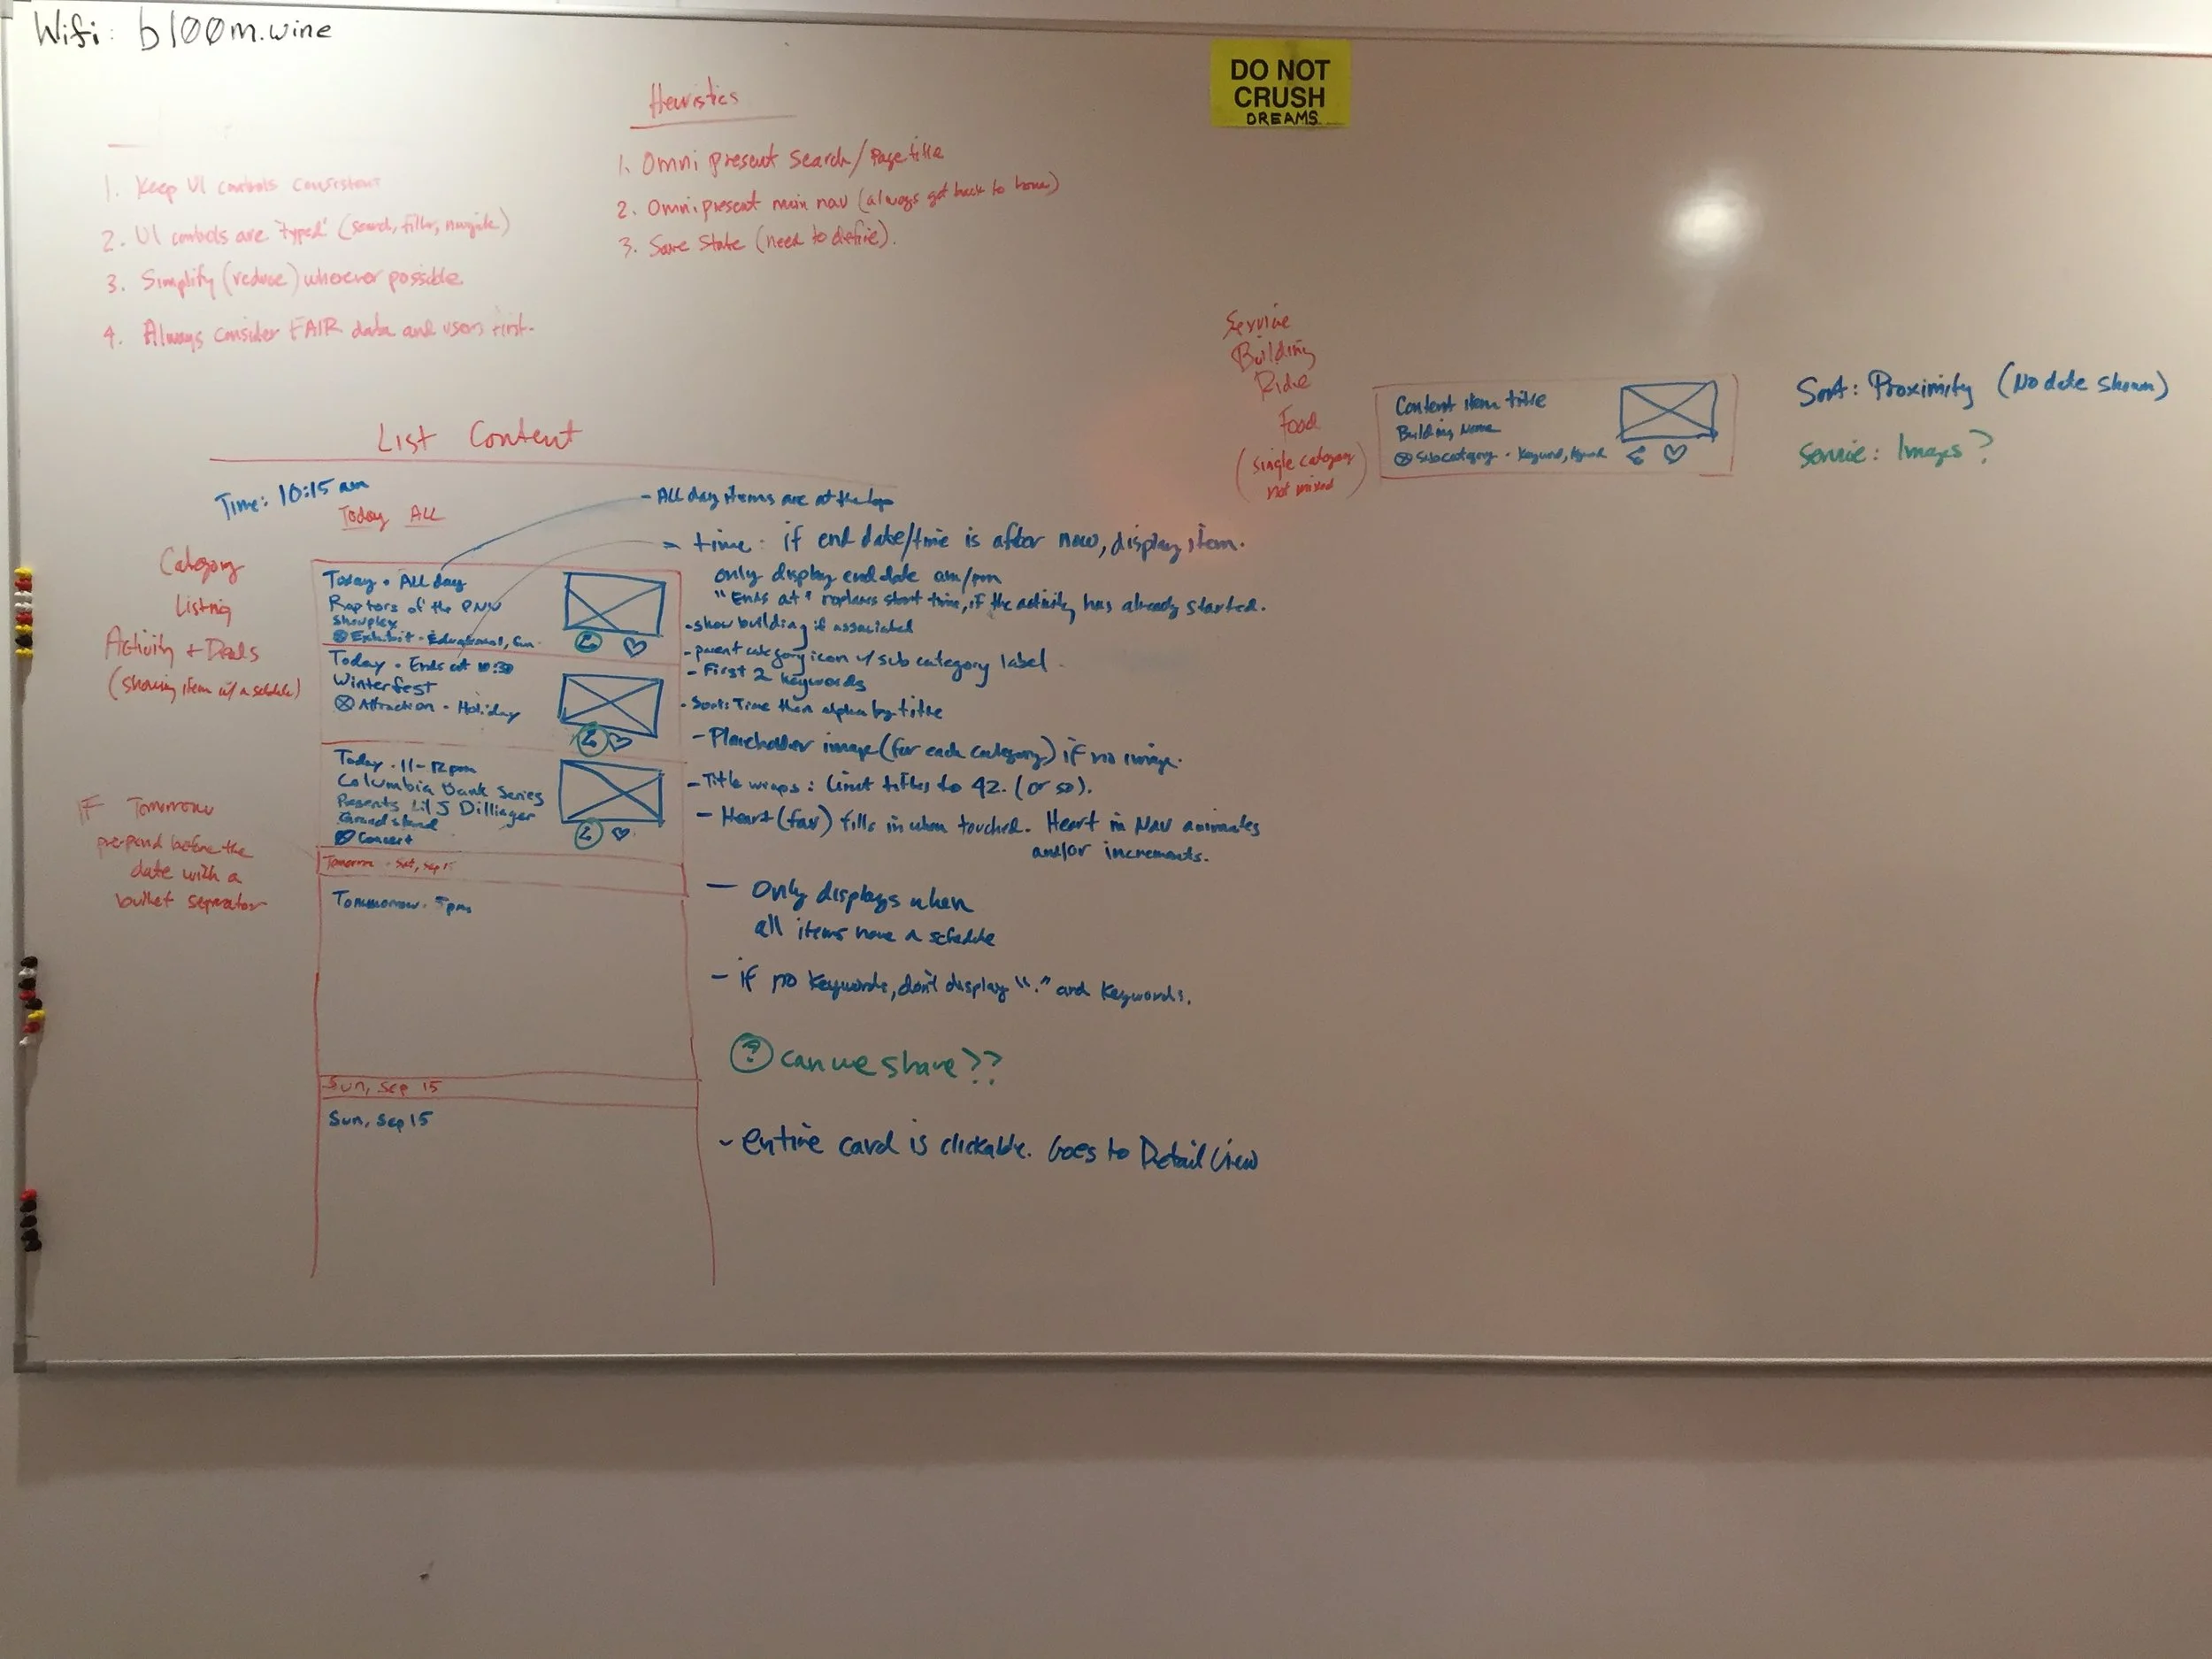 Wifi: bl00m.wine
DO NOT
CRUSH
DREAMS
1. Keep UI controls consistent
2. UI controls are "typed" (search, filter, navigate)
3. Simplify (reduce) wherever possible.
4. Always consider FAIR data and users first.
Heuristics
1. Omni present Search/Page title
2. Omnipresent main nav (always get back to home)
3. Save State (need to define).
List Content
Time: 10:15 am
Today ALL
Category
Listing
Activity + Deals
(showing item w/ a schedule)
IF Tomorrow
pre-pend before the
date with a
bullet separator
Today • All day
Raptors of the PNW
Showplex
Exhibit • Educational, fun
Today • Ends at 10:30
Winterfest
Attraction • Holiday
Today • 11-12pm
Columbia Bank Series
Presents Lil J Dillinger
Grandstand
Concert
Tomorrow • Sat, Sep
Tommorrow • 5pm
Sun, Sep 15
Sun, Sep 15
- All day items are at the top
time: if end date/time is after now, display item.
only display end date am/pm
"Ends at" replaces start time, if the activity has already started.
- show building if associated
- parent category icon w/ sub category label
- First 2 keywords
- Sort: Time then alpha by title
- Placeholder image (for each category) if no image.
- Title wraps: limit titles to 42. (or so).
- Heart (fav) fills in when touched. Heart in Nav animates
and/or increments.
- Only displays when
all items have a schedule
- if no keywords, don't display "•" and keywords.
? can we share??
- entire card is clickable. Goes to Detail View
Service
Building
Ride
Food
(single category
not mixed)
Content item title
Building Name
Subcategory • Keyword,
Sort: Proximity (No date shown)
Service: Images?